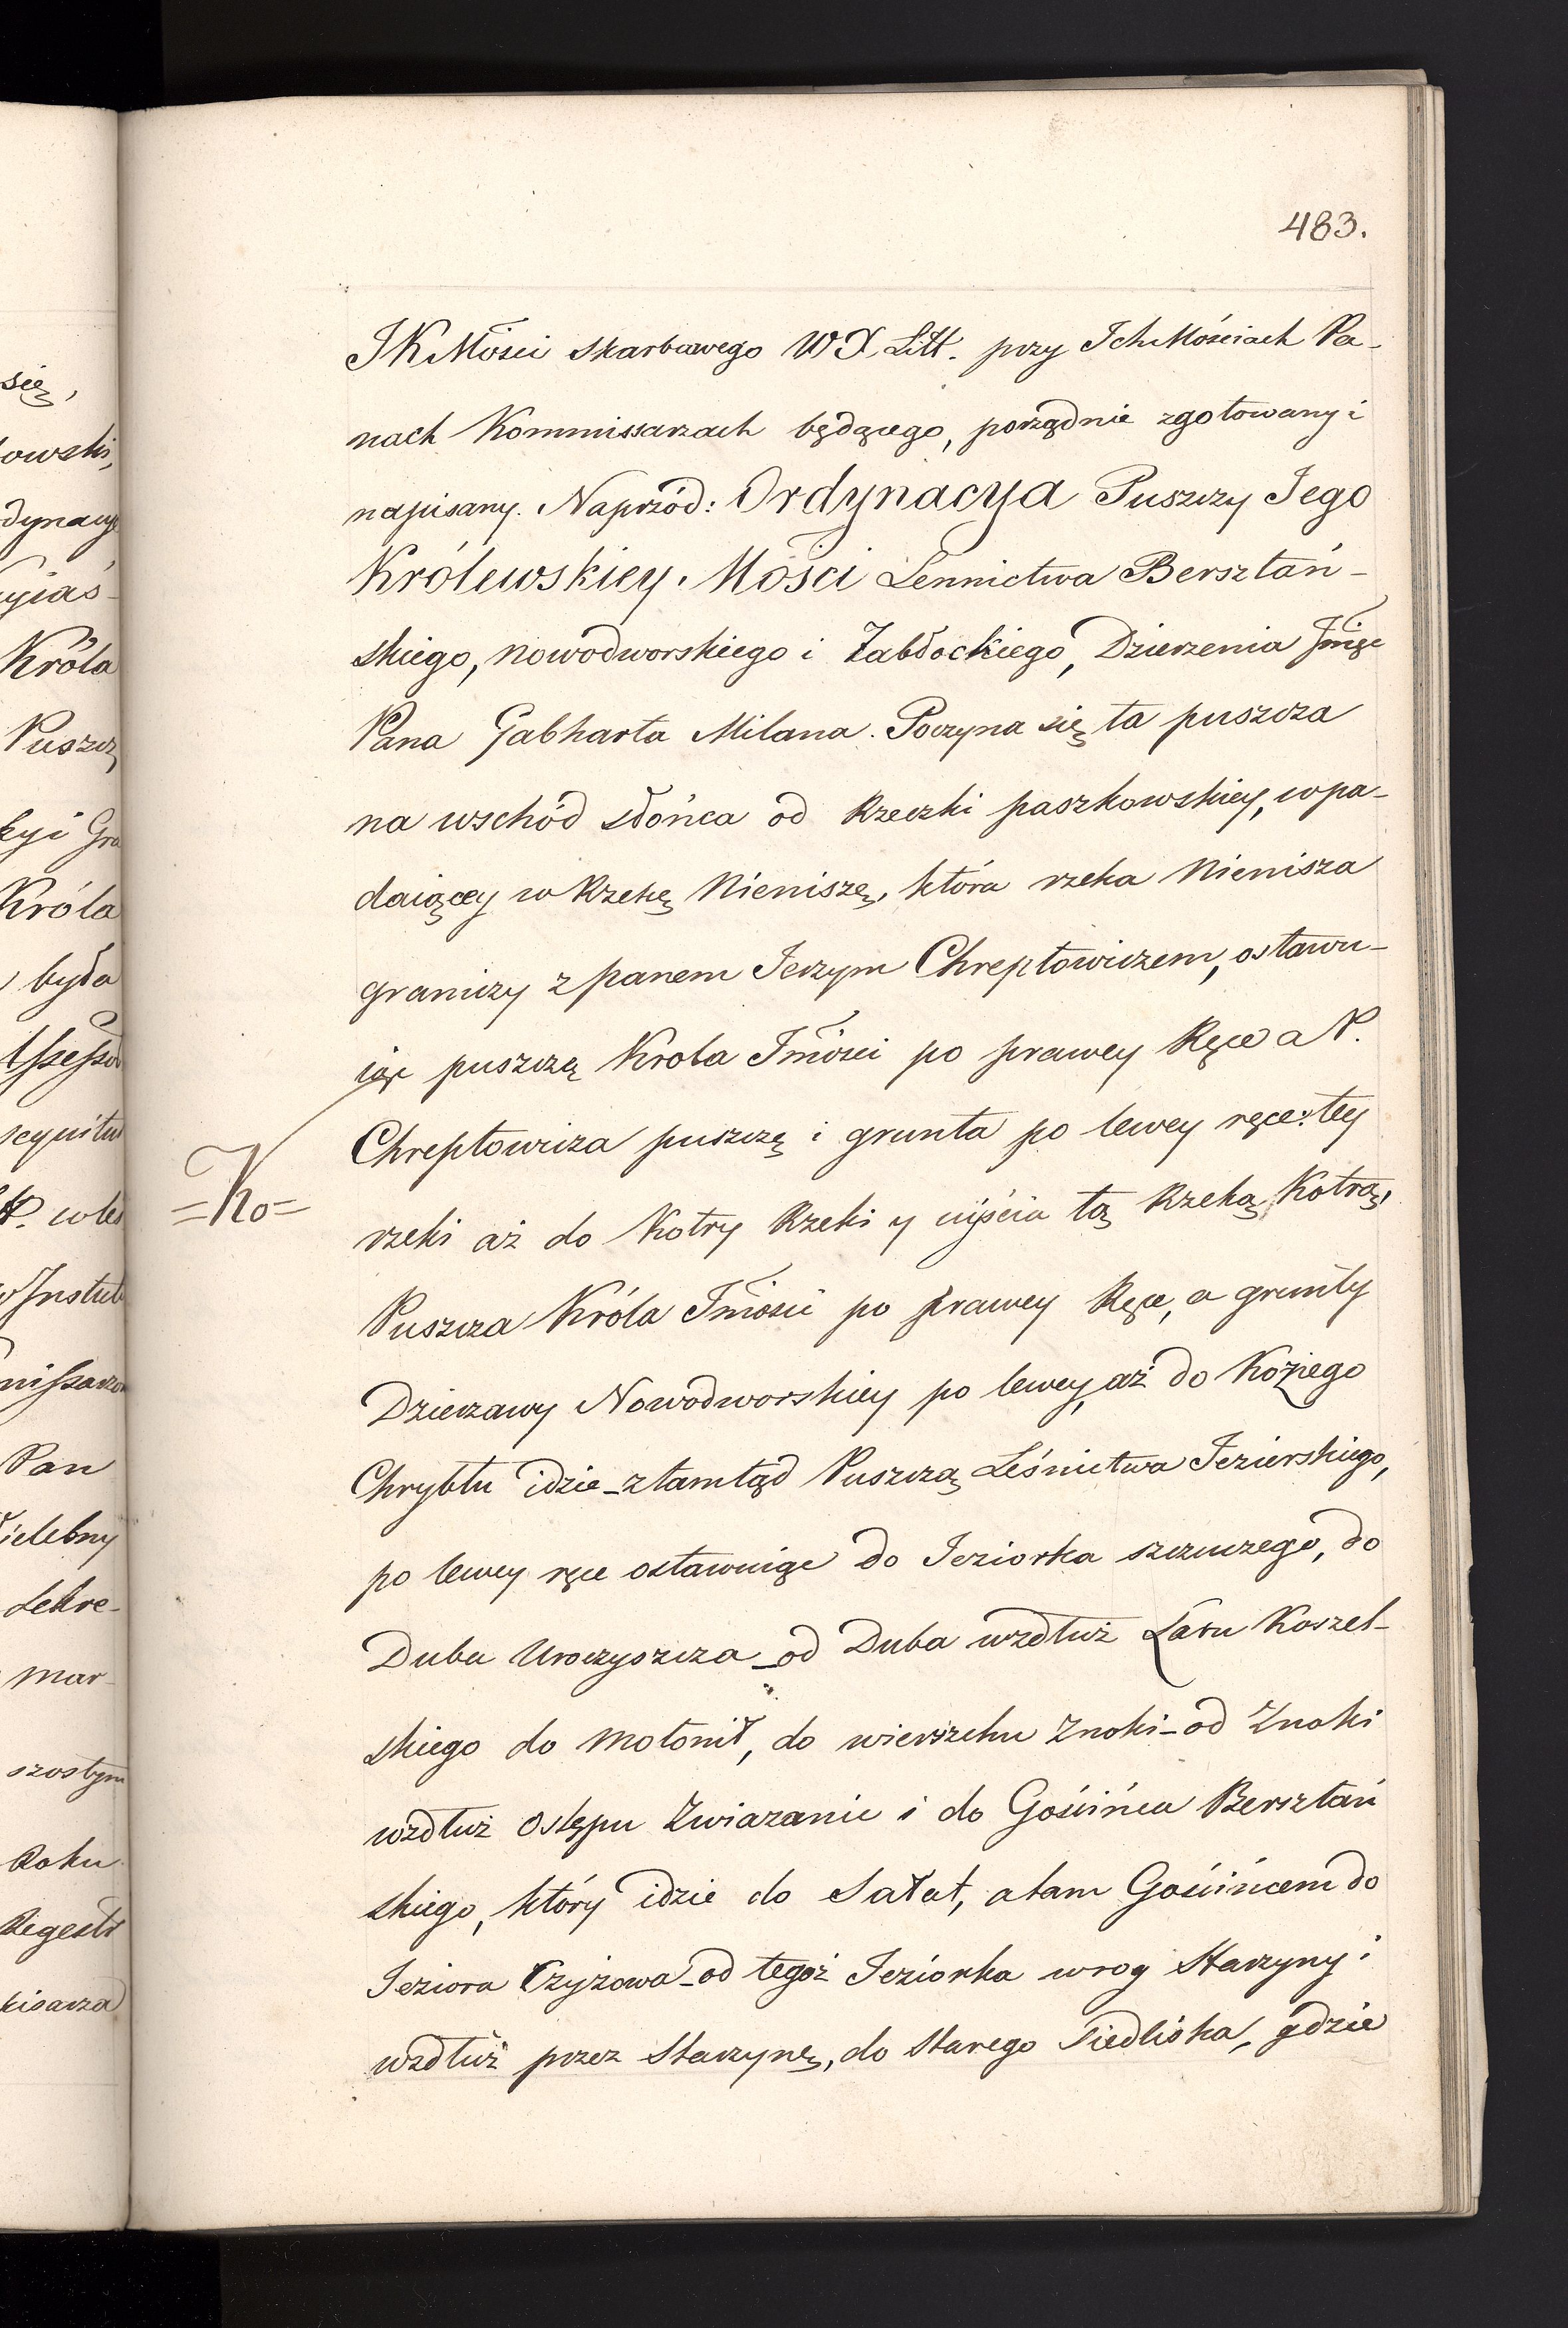 483.
JKMości skarbowego W X. Litt. przy IchMościach Pa-
nach Kommissarzach będącego, porządnie zgotowany i
napisany. Naprzód: Ordynacya Puszczy Iego
Królewskiey. Mości Lennictwa Bersztań-
skiego, nowodworskiego i Zabłockiego, Dzierzenia
Pana Gabharta Milana. Poczyna się ta puszcza
na wschód słońca od Rzeczki paszkowskiey, wpa-
daiącey w Rzekę Nieniszę, która rzeka Nienisza
graniczy z panem Ierzym Chreptowiczem, ostawu-
iąc puszczą Krola Jmości po prawey Ręce a P.
Chreptowicza puszczę i grunta po lewey ręce: tey
=Ko=
rzeki aż do Kotry Rzeki y uyścia tą Rzeką Kotrą,
Puszcza Króla Jmości po prawey Ręce, a grunty
Dzierzawy Nowodworskiey po lewey, aż do Koziego
Chrybtu idzie_ztamtąd Puszczą Leśnictwa Iezierskiego,
po lewey ręce ostawuiąc do Ieziorka szczuczego, do
Duba Uroczyszcza_od Duba wzdłuż Łasu Koszel-
skiego do Motonił, do wierszchu Znoki_od Znoki
wzdłuż Ostępu Zwiazanie i do Gościńca Bersztań
skiego, który idzie do Sałat, atam Gościńcem do
Ieziora Czyżowa_od tegoż Ieziorka wrog Starzyny i
wzdłuż przez Starzynę, do Starego Siedliska, gdzie